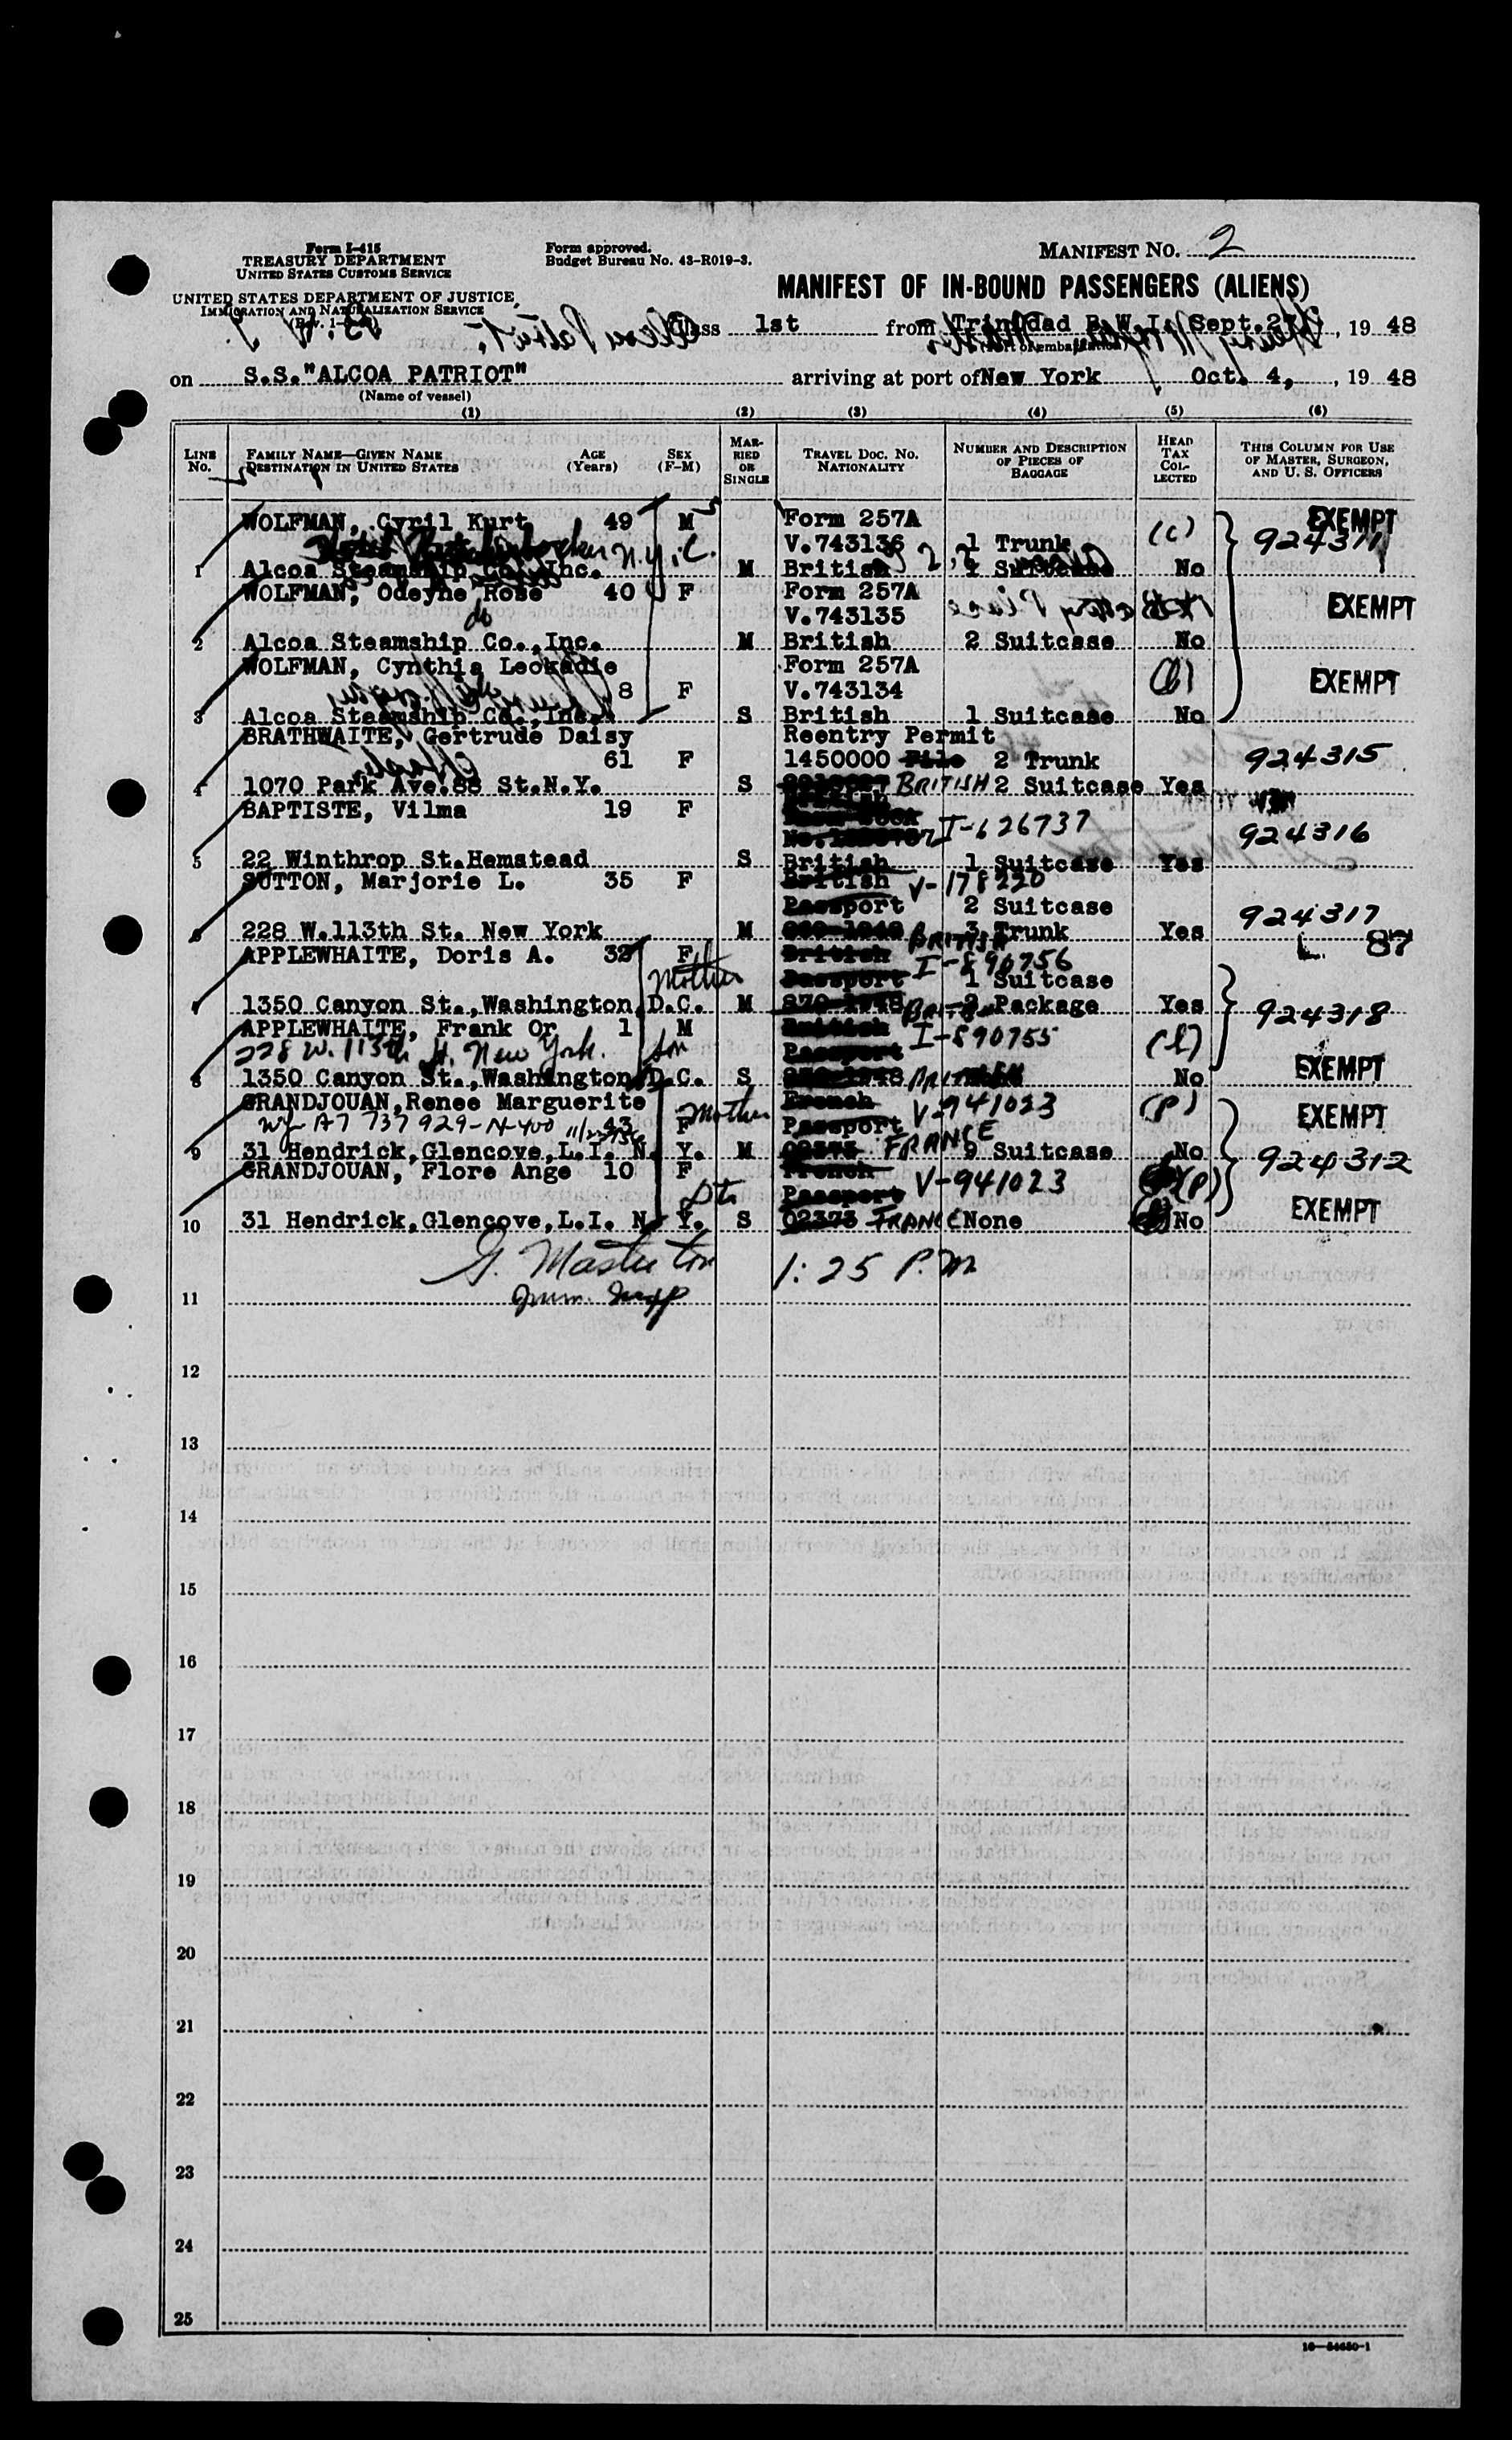 Form I-415
TREASURY DEPARTMENT
UNITED STATES CUSTOMS SERVICE
UNITED STATES DEPARTMENT OF JUSTICE
IMMIGRATION AND NATURALIZATION SERVICE
Form approved.
Budget Bureau No. 43-R019-3.
MANIFEST NO. 2
MANIFEST OF IN-BOUND PASSENGERS (ALIENS)
Class 1st from Trinidad B.W.I. Sept. 27, 19 48
on S.S."ALCOA PATRIOT" arriving at port of New York Oct. 4, 19 48
(Name of vessel)
(1) (2) (3) (4) (5) (6)
LINE No. FAMILY NAME—GIVEN NAME DESTINATION IN UNITED STATES AGE (Years) SEX (F-M) MARRIED OR SINGLE TRAVEL DOC. NO. NATIONALITY NUMBER AND DESCRIPTION OF PIECES OF BAGGAGE HEAD TAX COLLECTED THIS COLUMN FOR USE OF MASTER, SURGEON, AND U. S. OFFICERS
WOLFMAN, Cyril Kurt 49 M Form 257A EXEMPT
N.Y.C. V.743136 1 Trunk (c) 924311
1 Alcoa Steamship Co., Inc. M British Suitcase No
WOLFMAN, Odeyne Rose 40 F Form 257A EXEMPT
do V.743135
2 Alcoa Steamship Co., Inc. M British 2 Suitcase No
WOLFMAN, Cynthia Leokadie Form 257A EXEMPT
8 F V.743134
3 Alcoa Steamship Co., Inc. S British 1 Suitcase No
BRATHWAITE, Gertrude Daisy Reentry Permit
61 F 1450000 File 2 Trunk 924315
4 1070 Park Ave.88 St.N.Y. S BRITISH 2 Suitcase Yes
BAPTISTE, Vilma 19 F
I-626737 924316
5 22 Winthrop St.Hemstead S British 1 Suitcase Yes
SUTTON, Marjorie L. 35 F British V-178220
Passport 2 Suitcase 924317
6 228 W.113th St. New York M BRITISH 3 Trunk Yes 87
APPLEWHAITE, Doris A. F British I-890756
Mother Passport 1 Suitcase
7 1350 Canyon St.,Washington,D.C. M 370-1948 Package Yes 924318
APPLEWHAITE, Frank Or 1 M British I-890755
228 W. 113th St. New York. son Passport
8 1350 Canyon St.,Washington,D.C. S No EXEMPT
GRANDJOUAN,Renee Marguerite French V-941023 (P) EXEMPT
A7 737929-N-400 43 F Mother Passport
9 31 Hendrick,Glencove,L.I. N.Y. M 02373 FRANCE Suitcase No 924312
GRANDJOUAN, Flore Ange 10 F French V-941023 (P)
Dtr Passport EXEMPT
10 31 Hendrick,Glencove,L.I. N.Y. S 02373 FRANCE None No
G. Masterton 1:25 P.M
Imm. Insp
11
12
13
14
15
16
17
18
19
20
21
22
23
24
25
16—54650-1